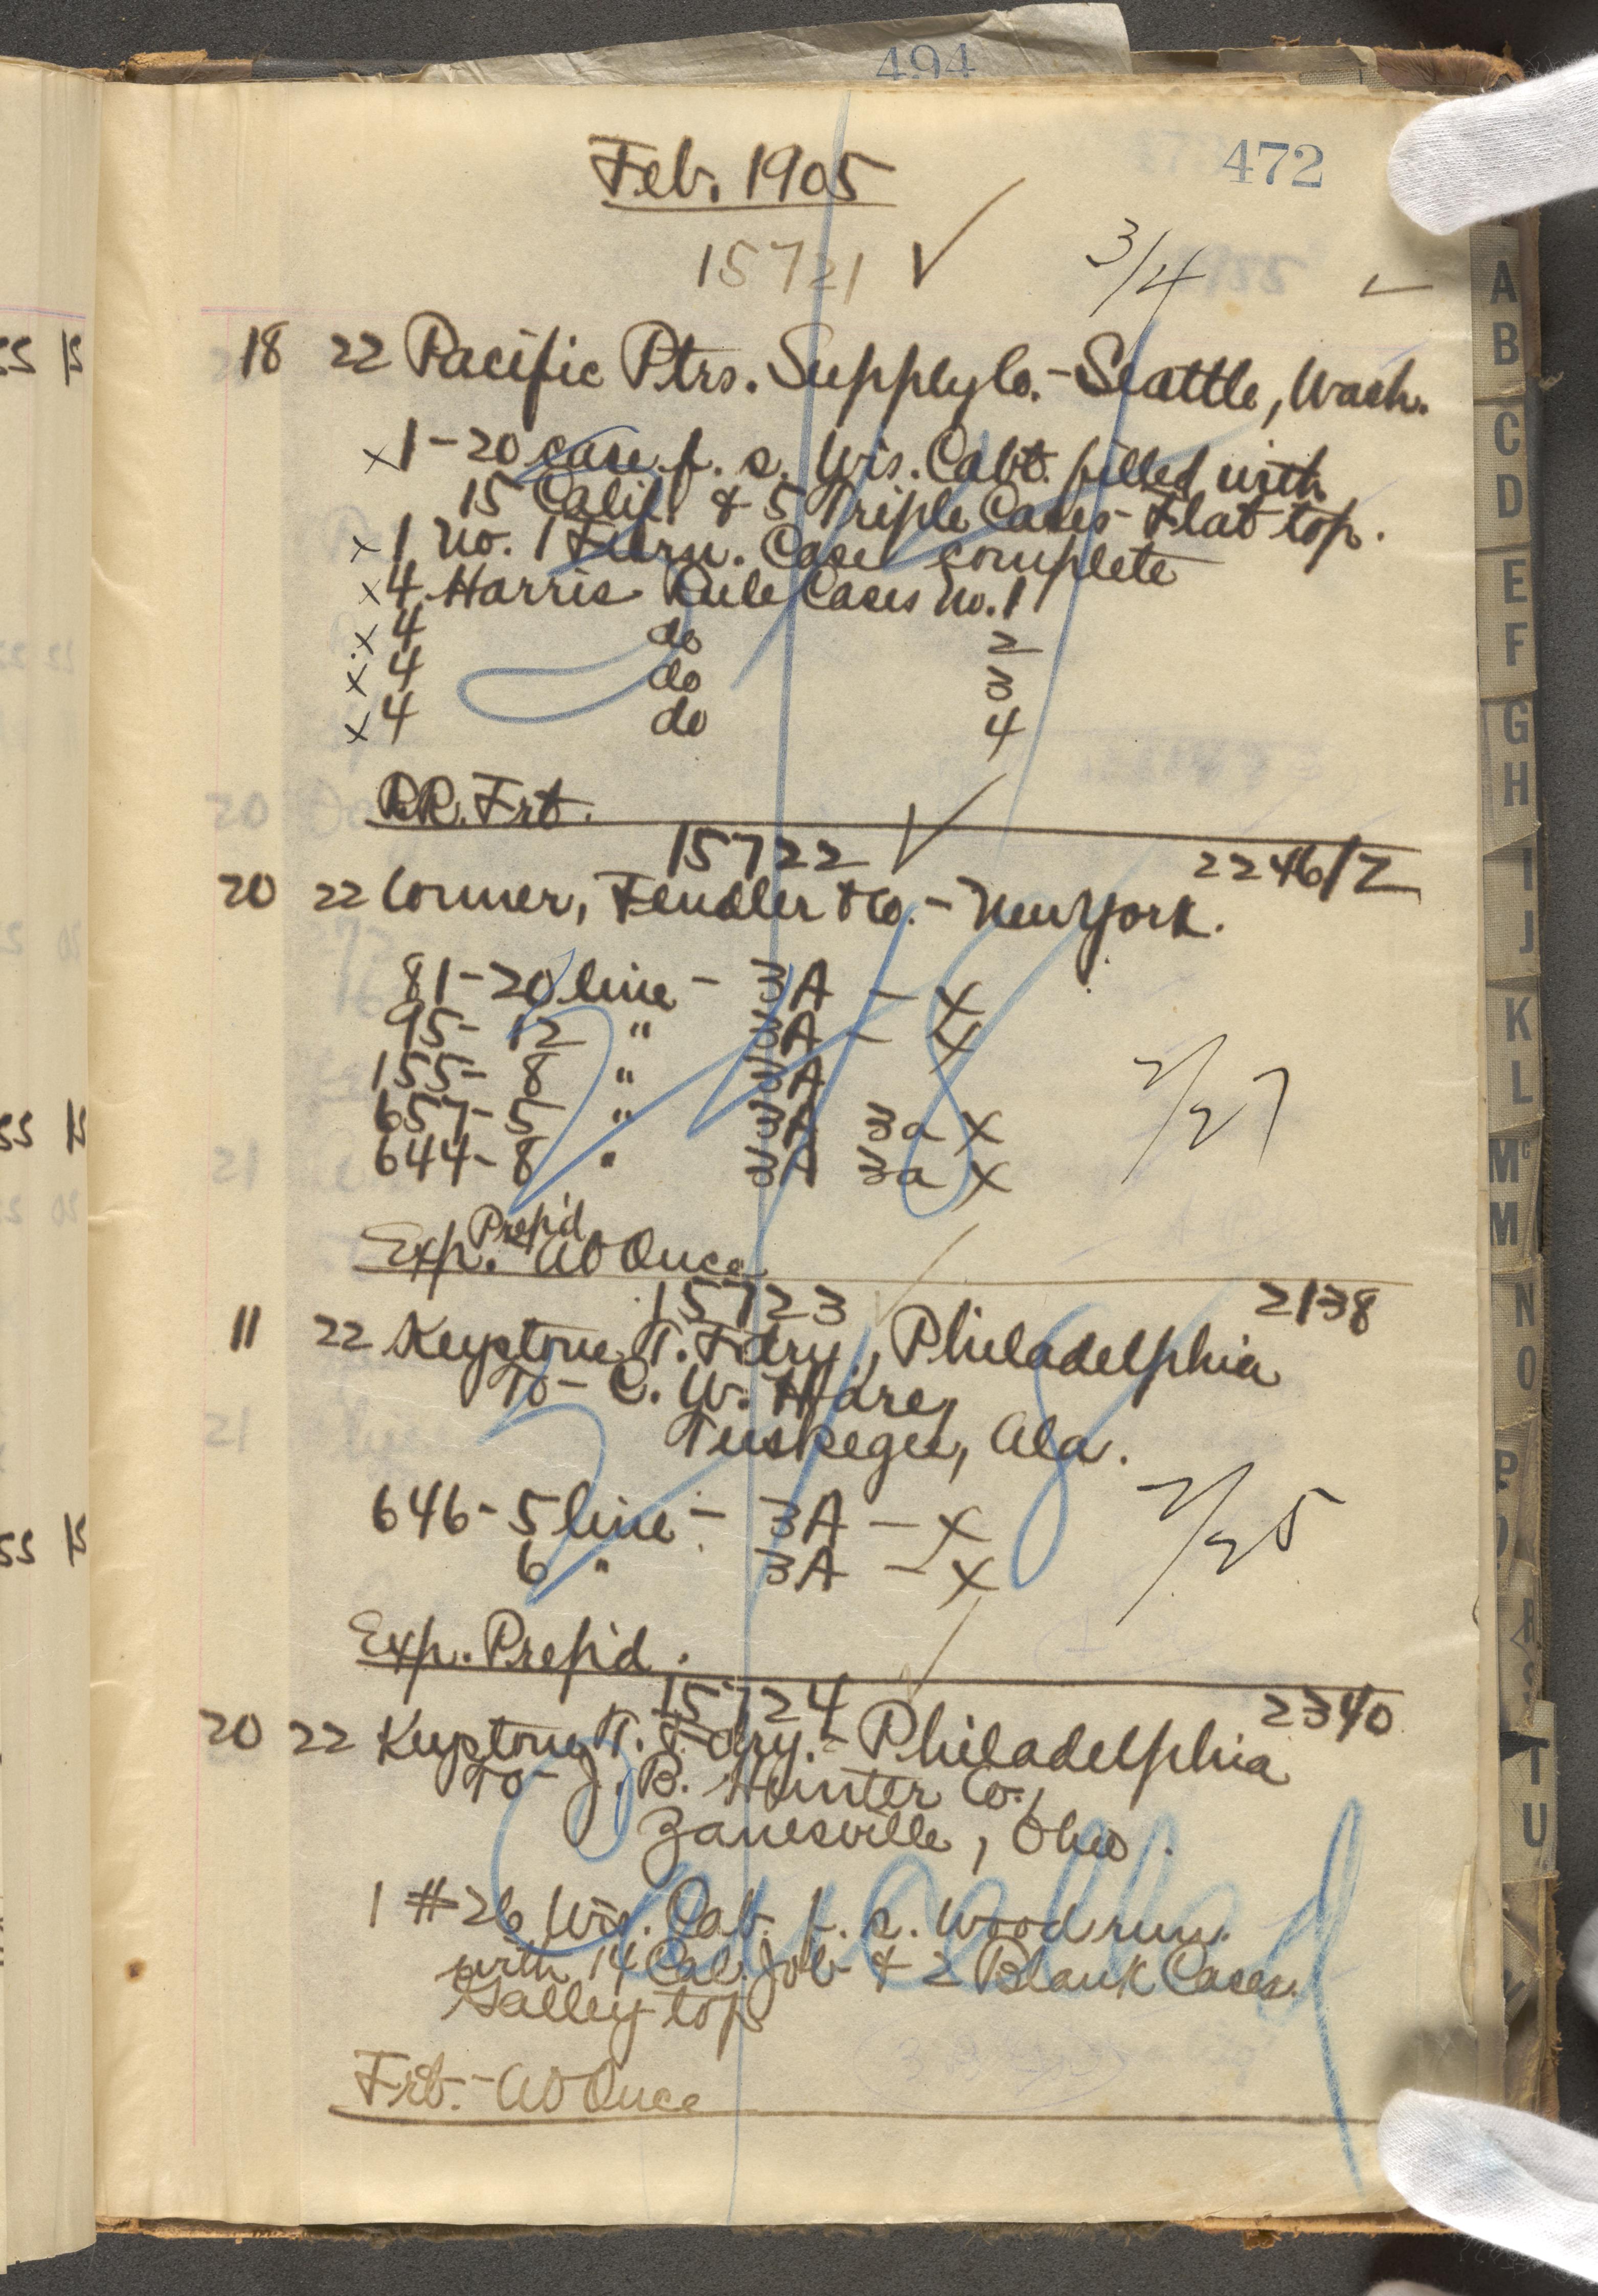 494
472
Feb. 1905
15721 ✓ 3/4
18 22 Pacific Ptrs. Supply Co. - Seattle, Wash.
x 1-20 case f. s. Wis. Cabt. filled with
15 Calif. & 5 Triple Cases - Flat top.
x 1 No. 1 Cases complete
x 4 Harris Rule Cases No. 1
x 4 do 2
x 4 do 3
x 4 do 4
RR. Frt.
15722 ✓ 2246/2
20 22 Conner, Fendler & Co. - New York.
81-20 line - 3A - x
95-12 " 3A - x
155-8 " 3A
657-5 " 3A 3a x
644-8 " 3A 3a x
2/27
Prep'd
Exp. At Once
15723 2138
11 22 Keystone T. Fdry., Philadelphia
To - C. W. Hare,
Tuskegee, Ala.
646-5 line - 3A - x
6 " 3A - x
2/25
Exp. Prep'd.
15724 2340
20 22 Keystone T. Fdry. - Philadelphia
To - J. B. Hunter Co.,
Zanesville, Ohio.
1 #26 Wis. Cab. f. s. Wood run.
with 14 Cal. Job & 2 Blank Cases.
Galley top
Cancelled
Frt. - At Once
A
B
C
D
E
F
G
H
I
J
K
L
Mc
M
N
O
P
R
S
T
U